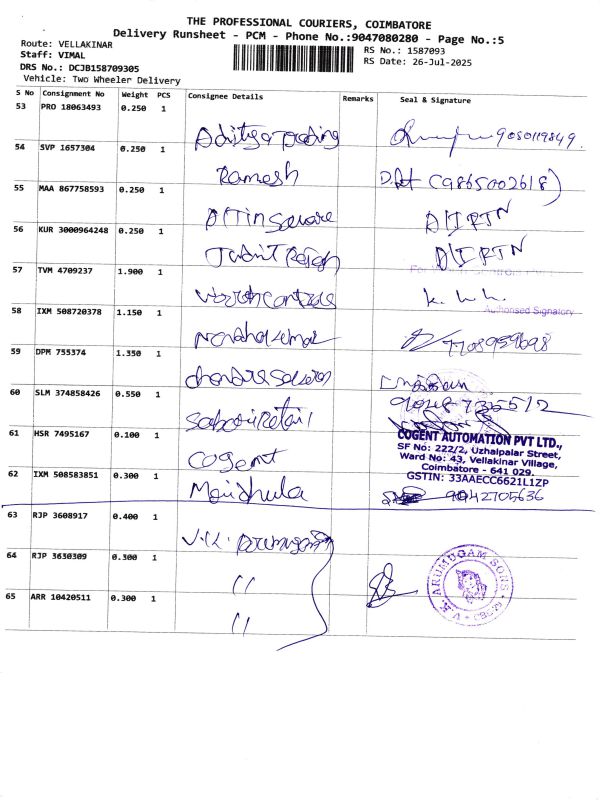 THE PROFESSIONAL COURIERS, COIMBATORE
Delivery Runsheet - PCM - Phone No.:9047080280 - Page No.:5
Route: VELLAKINAR
Staff: VIMAL
DRS No.: DCJB158709305
Vehicle: Two Wheeler Delivery
RS No.: 1587093
RS Date: 26-Jul-2025
S No Consignment No Weight PCS Consignee Details Remarks Seal & Signature
53 PRO 18063493 0.250 1 Aditya trading 9050119849
54 SVP 1657304 0.250 1 Ramesh (9865002618)
55 MAA 867758593 0.250 1 Square D/I RTN
56 KUR 3000964248 0.250 1 D/I RTN
57 TVM 4709237 1.900 1 controls
Authorised Signatory
58 IXM 508720378 1.150 1 7708959698
59 DPM 755374 1.350 1
60 SLM 374858426 0.550 1 Retail
61 HSR 7495167 0.100 1 Cogent
COGENT AUTOMATION PVT LTD.,
SF No: 222/2, Uzhaipalar Street,
Ward No: 43, Vellakinar Village,
Coimbatore - 641 029.
GSTIN: 33AAECC6621L1ZP
62 IXM 508583851 0.300 1 9042705636
63 RJP 3608917 0.400 1 V.K.
64 RJP 3630309 0.300 1 "
65 ARR 10420511 0.300 1 "
V.K. ARUMUGAM SONS